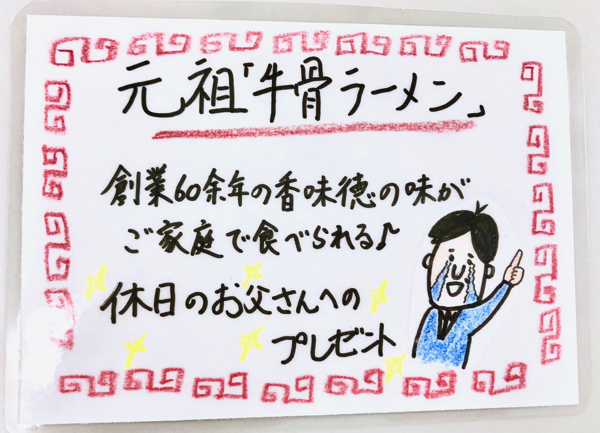 元祖「牛骨ラーメン」
創業60余年の香味徳の味が
ご家庭で食べられる♪
休日のお父さんへの
プレゼント